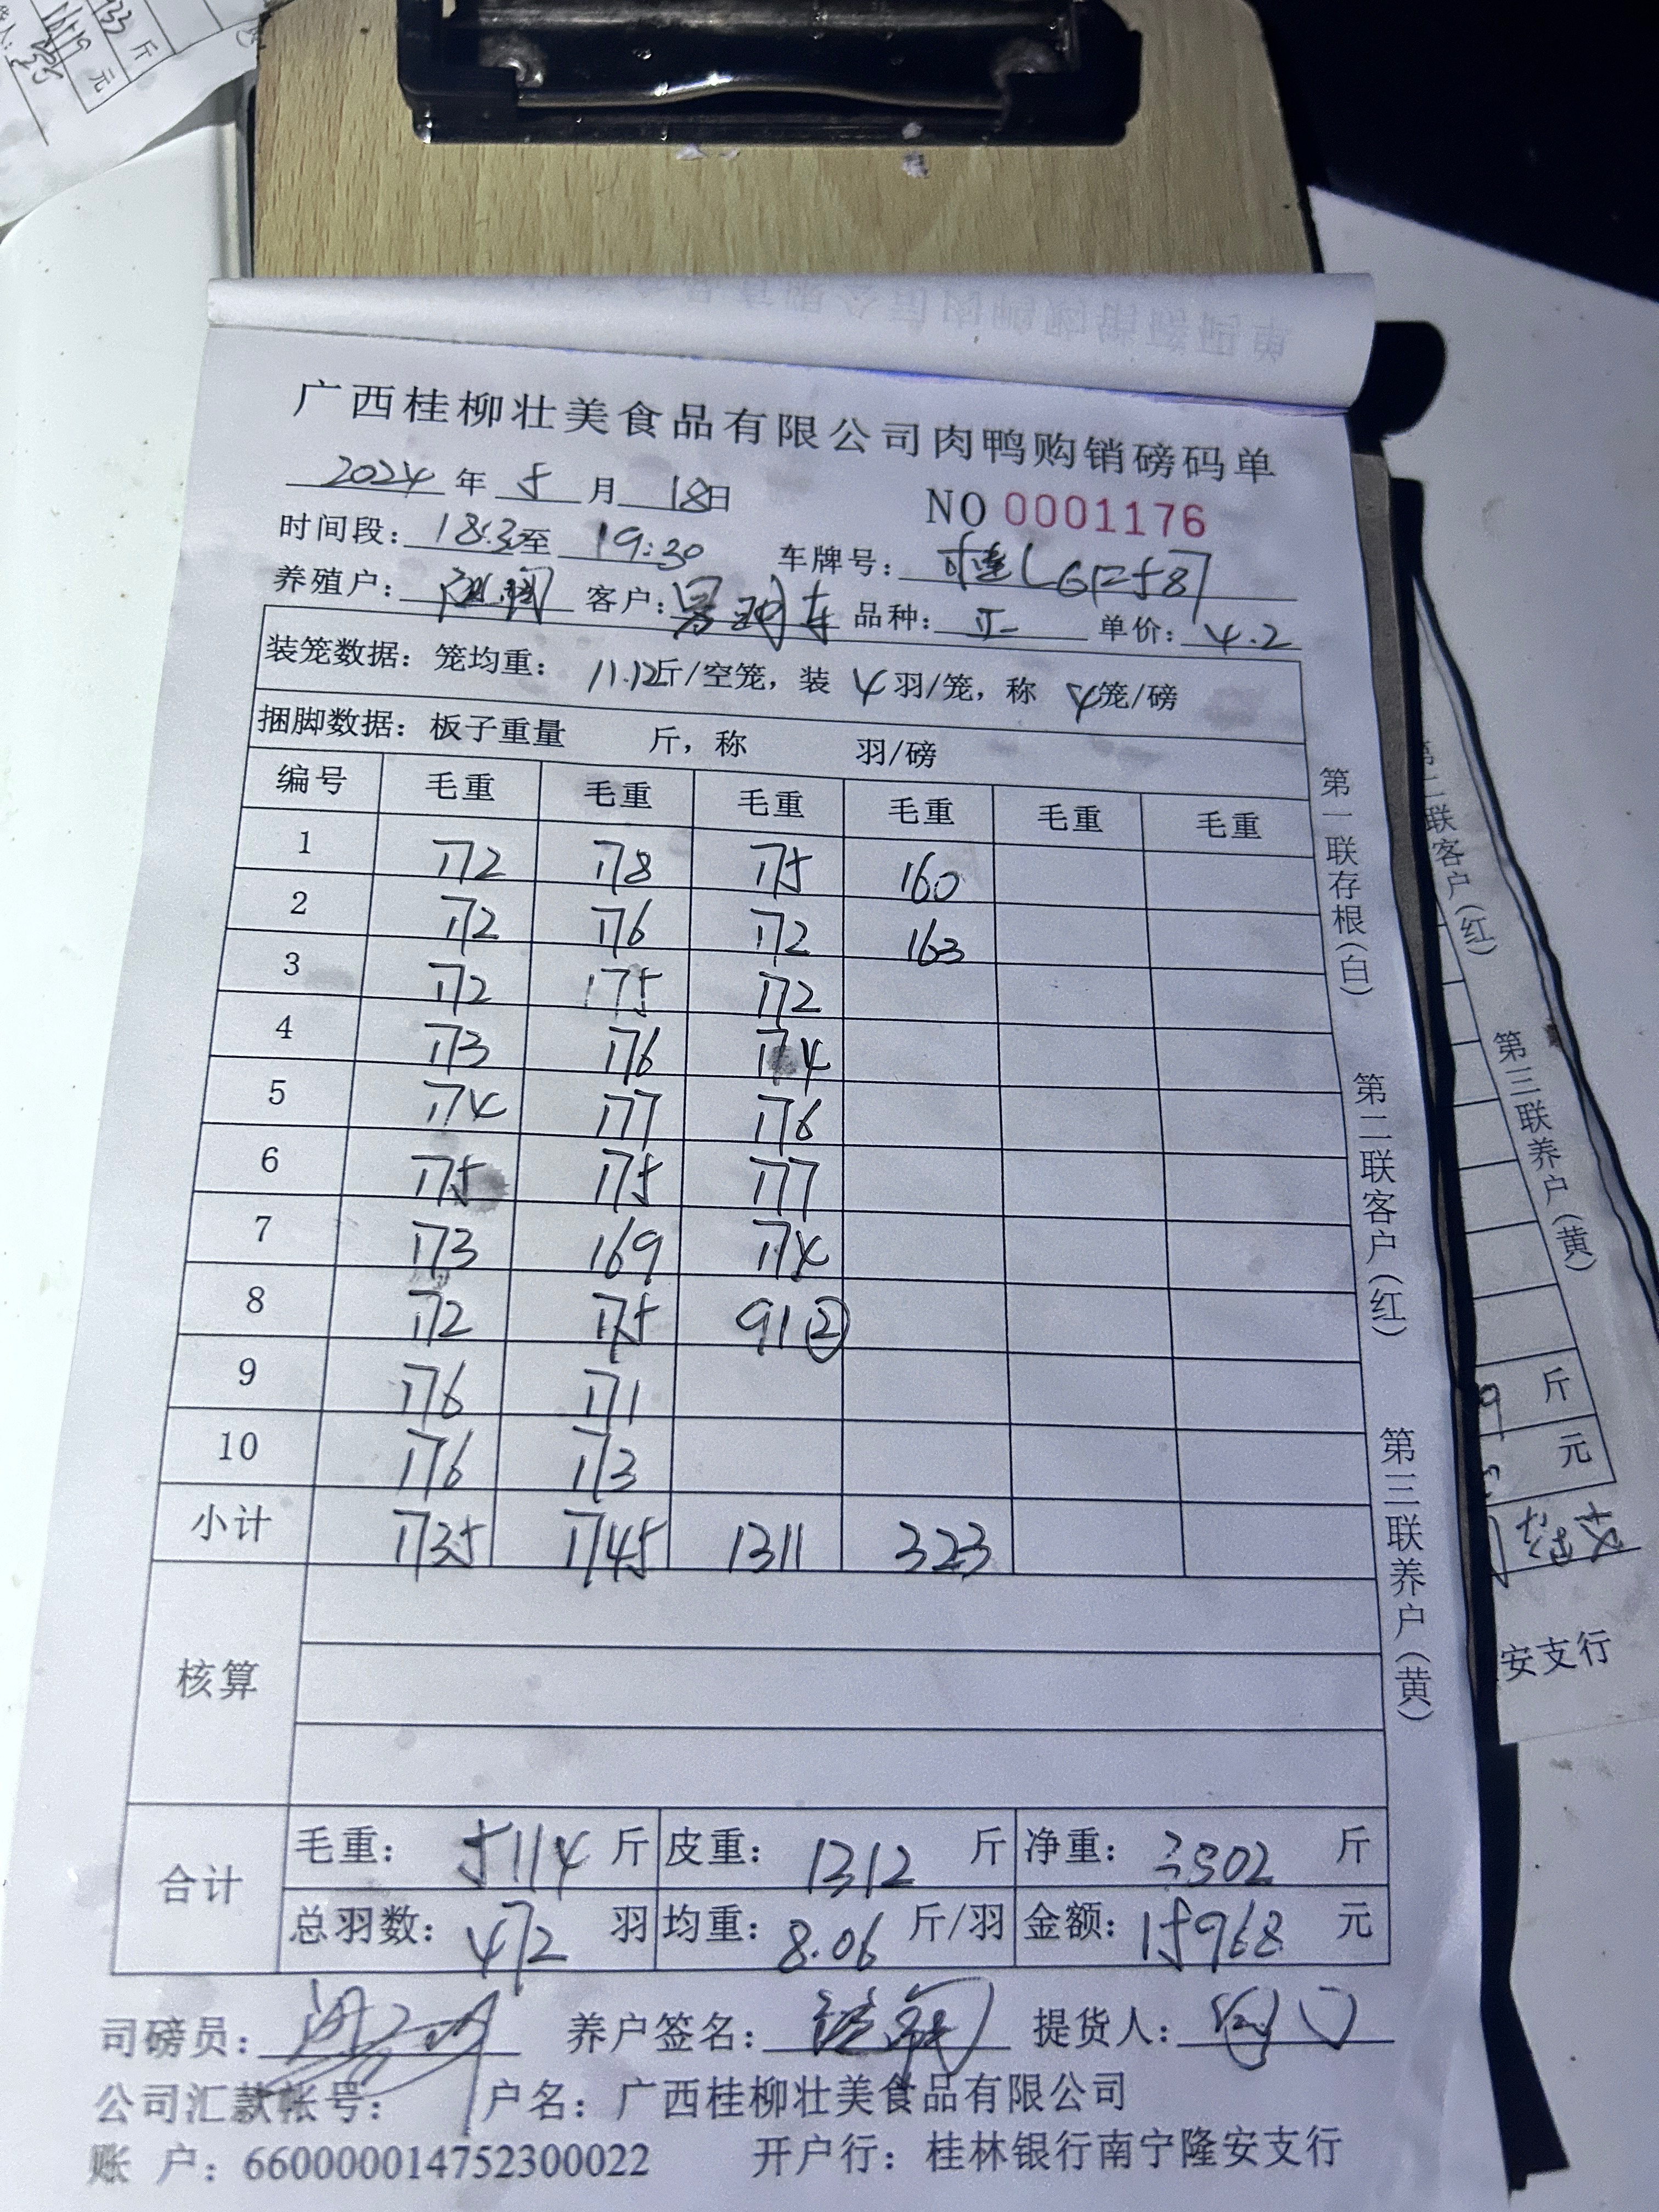 广西桂柳壮美食品有限公司肉鸭购销磅码单
2024年5月18日 NO 0001176
时间段：18:3至19:30 车牌号：桂L
养殖户： 客户： 品种： 单价：4.2
装笼数据：笼均重：11.12斤/空笼，装4羽/笼，称4笼/磅
捆脚数据：板子重量 斤，称 羽/磅
编号 毛重 毛重 毛重 毛重 毛重 毛重
1 172 178 175 160
2 172 176 172 163
3 172 175 172
4 173 176 174
5 174 177 176
6 175 175 177
7 173 169 174
8 172 175 91②
9 176 171
10 176 173
小计 1735 1745 1311 323
核算
合计 毛重：5114斤 皮重：1312斤 净重：3802斤
总羽数：472羽 均重：8.06斤/羽 金额：15968元
司磅员： 养户签名： 提货人：
公司汇款帐号： 户名：广西桂柳壮美食品有限公司
账 户：660000014752300022 开户行：桂林银行南宁隆安支行
第一联存根（白） 第二联客户（红） 第三联养户（黄）
第二联客户（红）
第三联养户（黄）
斤
元
安支行
斤
元